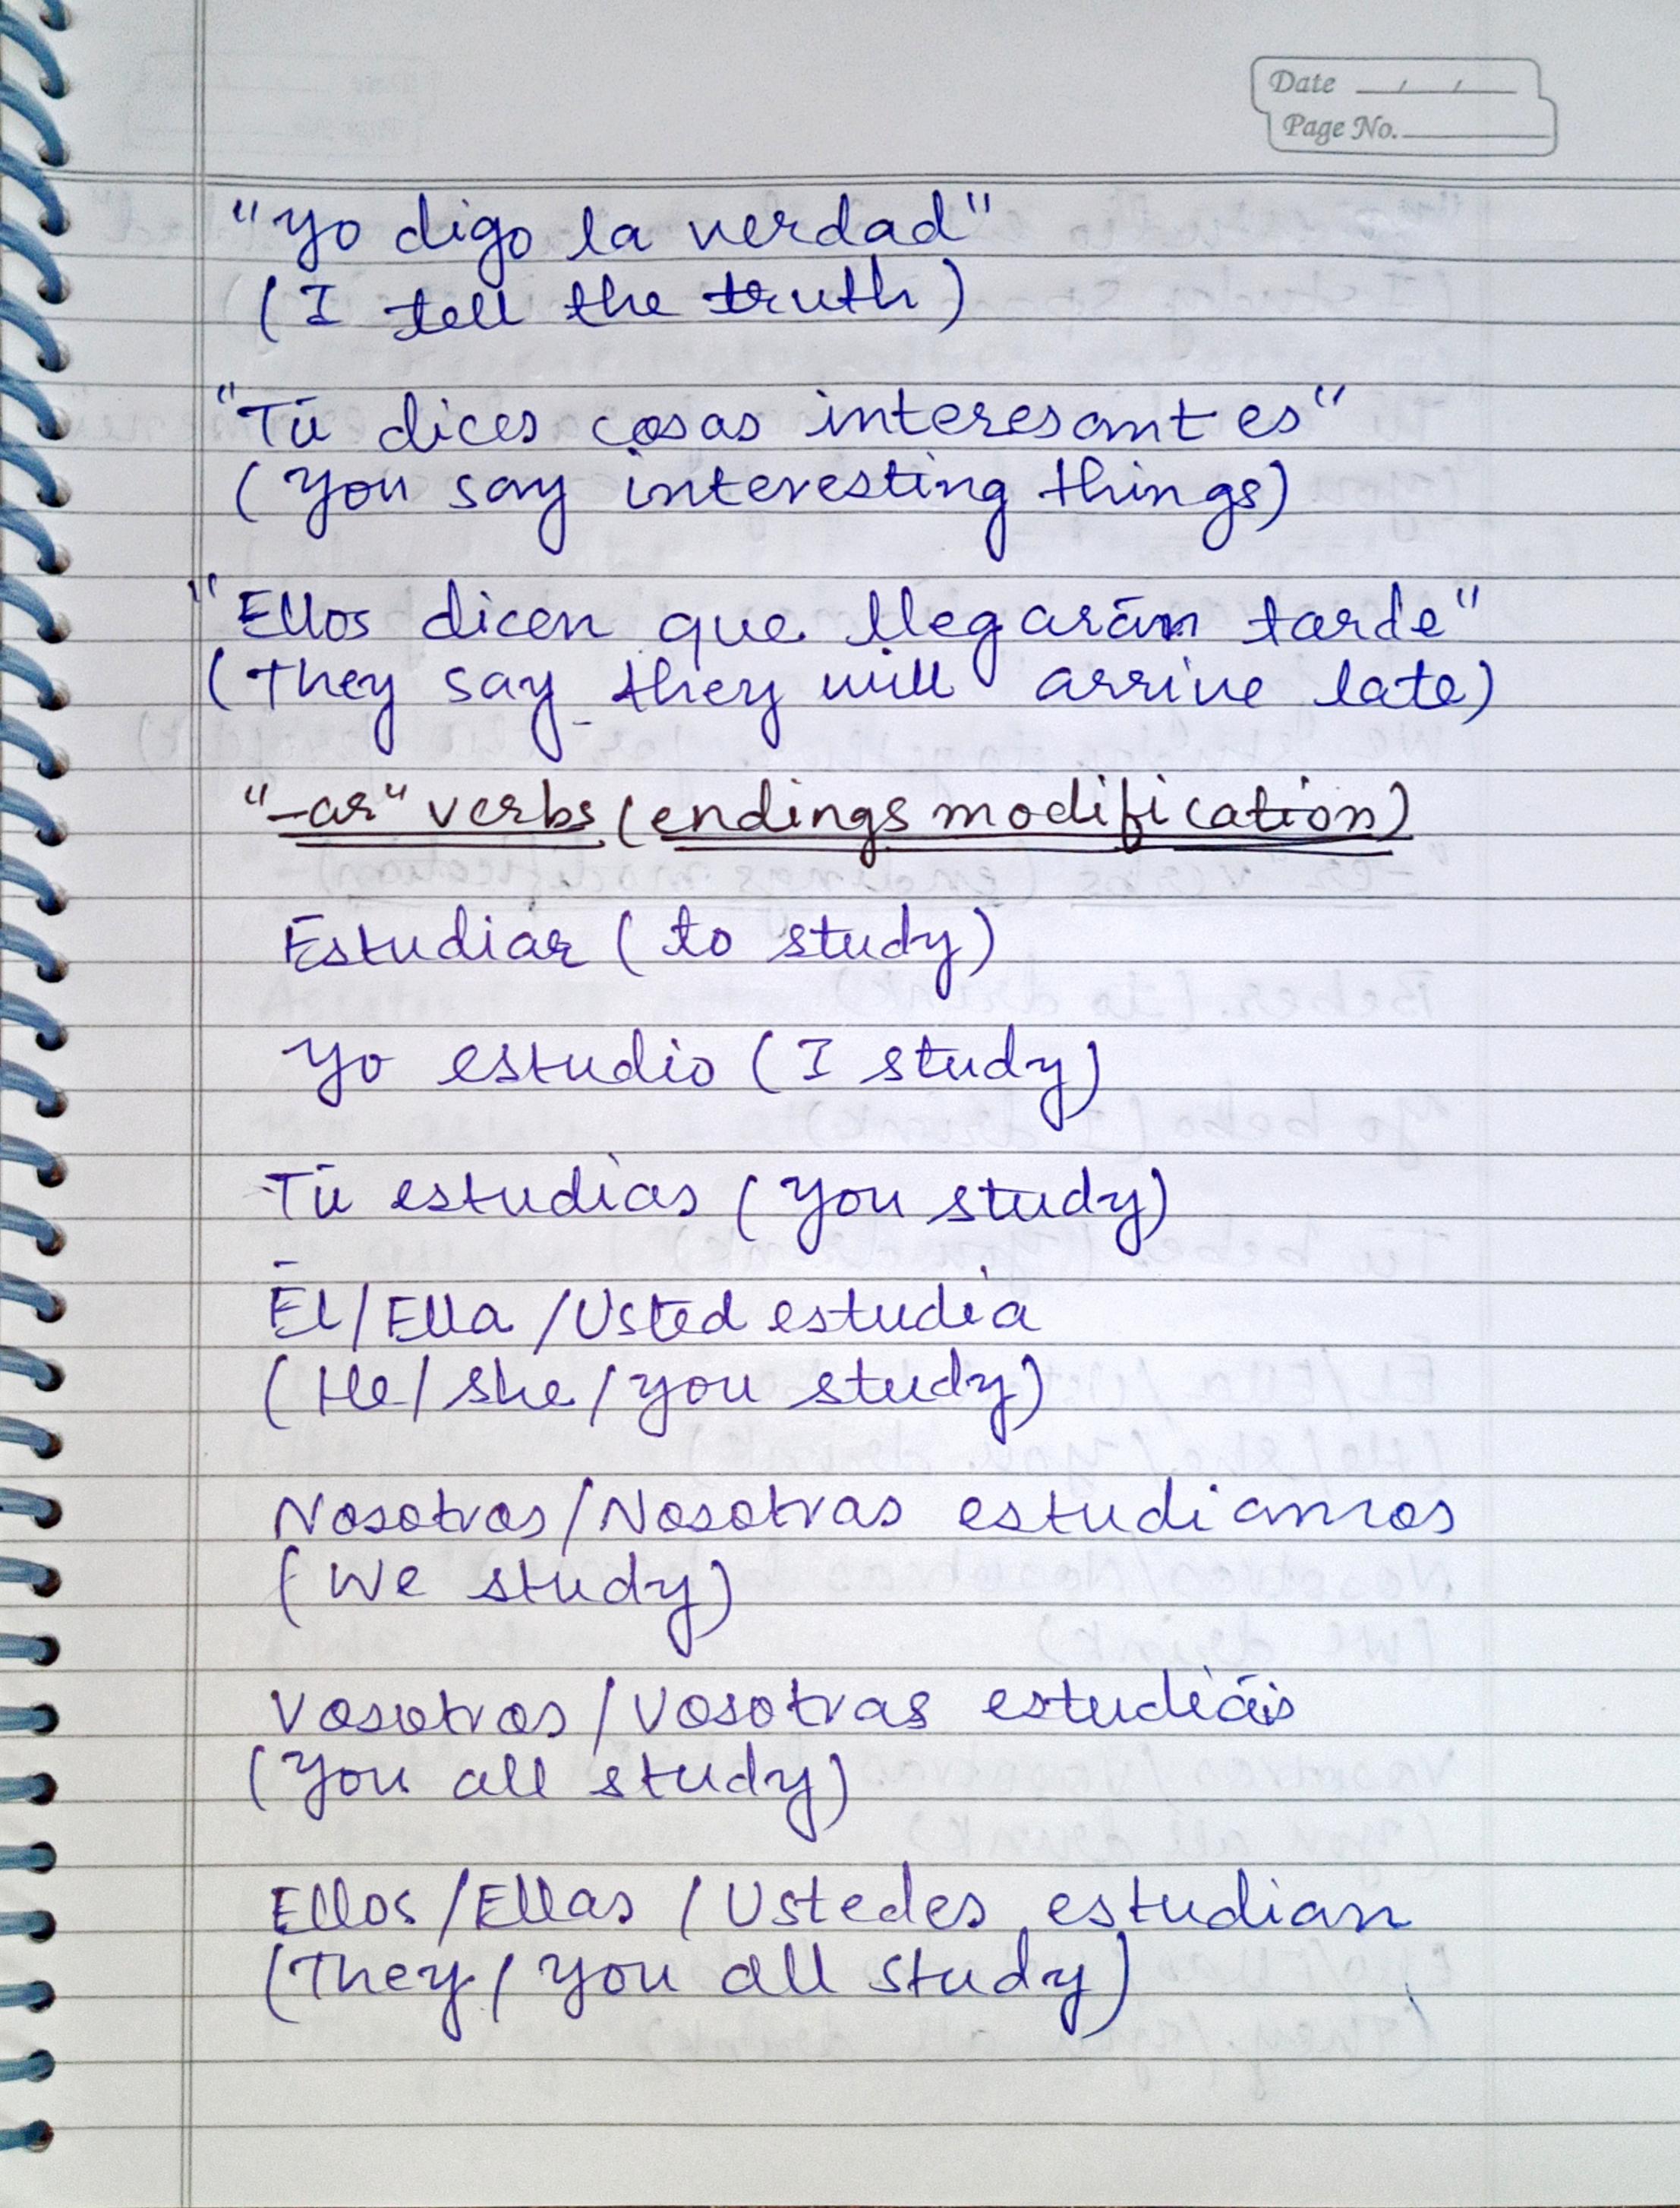 Date __/__/__
Page No.
"Yo digo la verdad"
(I tell the truth)
"Tū dices cosas interesantes"
(You say interesting things)
"Ellos dicen que llegarān tarde"
(They say they will arrive late)
"-ar" verbs (endings modification)
Estudiar (to study)
Yo estudio (I study)
Tū estudias (you study)
Ēl/Ella/Usted estudia
(He/she/you study)
Nosotros/Nosotras estudiamos
(We study)
Vosotros/Vosotras estudiāis
(You all study)
Ellos/Ellas/Ustedes estudian
(They/you all study)